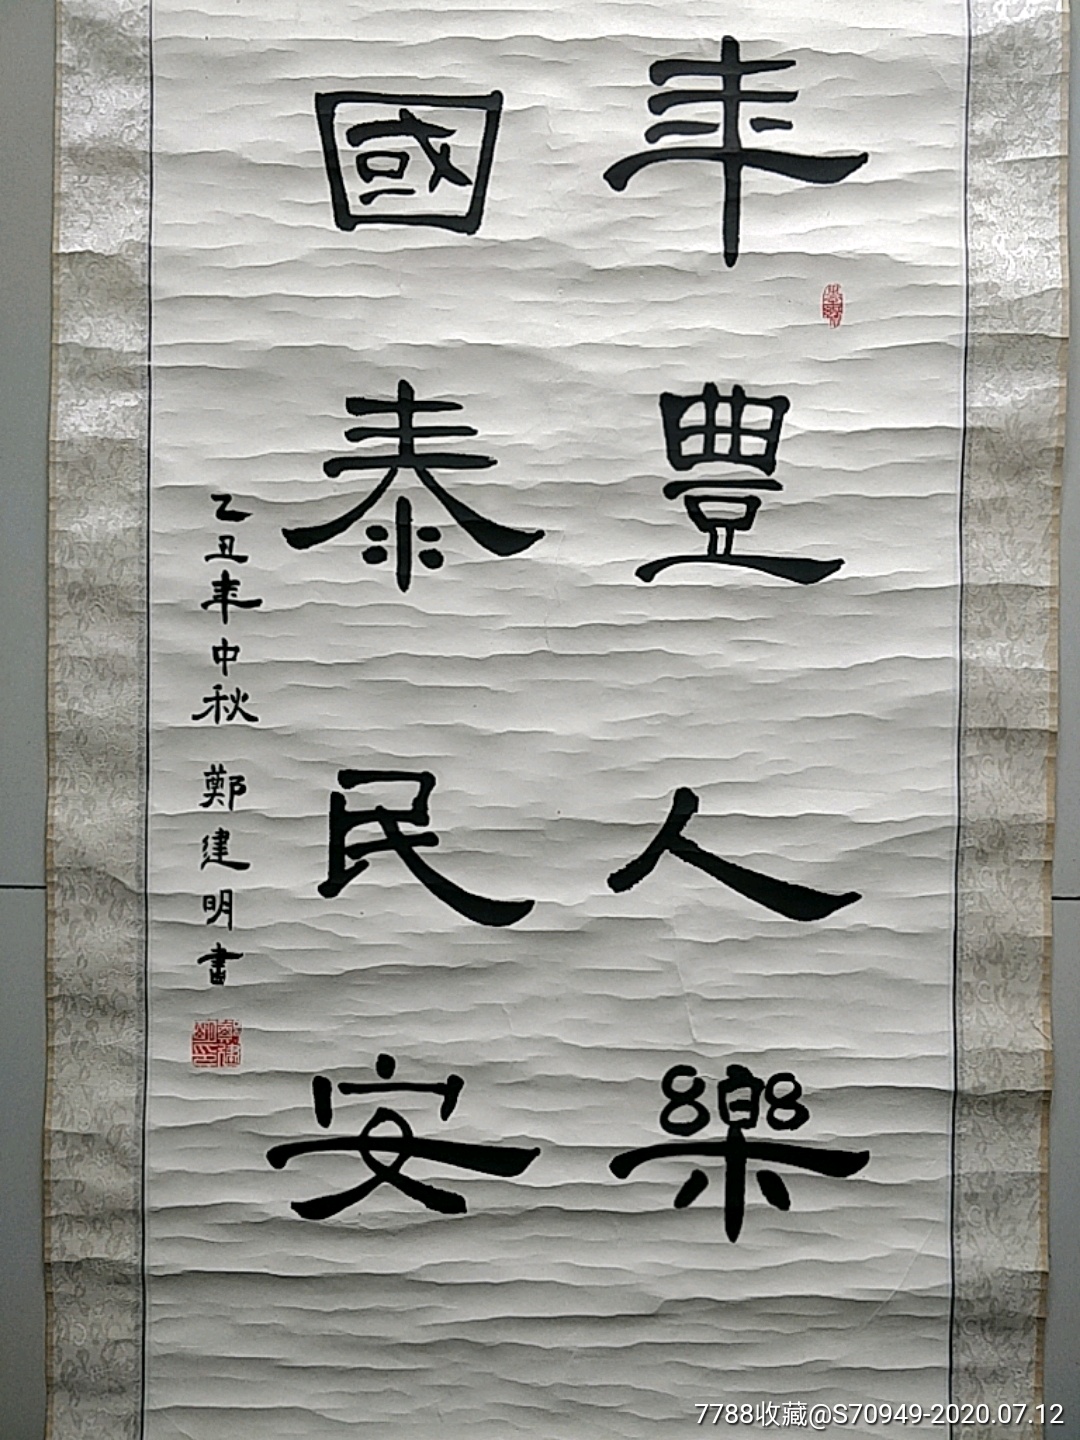 年豐人樂
國泰民安
乙丑年中秋 鄭建明書
7788收藏@S70949-2020.07.12